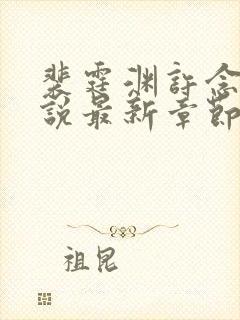 裴霆渊許念
說最新章節
祖昆